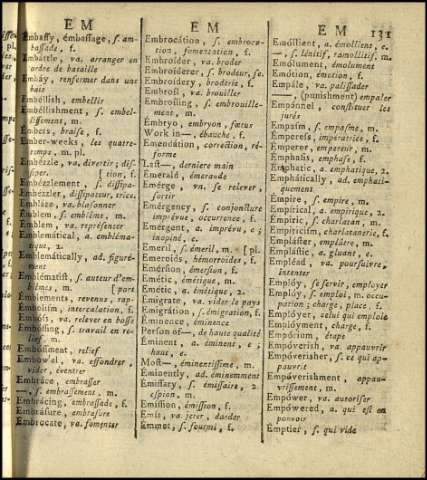 E M
E M
E M
131
Embassy, émbassage, s. am-
bassade, f.
Embáttle, va. arranger en
ordre de bataille
Embáy, renfermer dans une
baie
Embéllish, embellir
Embéllishment, s. embel-
lissement, m.
Émbers, braise, f.
Émber-weeks, les quatre-
temps, m. pl.
Embézzle, va. divertir; dis-
siper. [tion, f.
Embézzlement, s. dissipa-
Embézzler, dissipateur, trice.
Embláze, va. blasonner
Émblem, s. emblème, m.
Émblem, va. représenter
Emblemátical, a. embléma-
tique, 2.
Emblemátically, ad. figuré-
ment
Emblématist, s. auteur d'em-
blèmes, m. [port
Émblements, revenus, rap-
Émbolism, intercalation, f.
Embóss, va. relever en bosse
Embóssing, s. travail en re-
lief, m.
Embóssment, relief
Embówel, va. effondrer,
vider, éventrer
Embráce, embrasser
—, s. embrassement, m.
Embrácing, embrassade, f.
Embrásure, embrasure
Émbrocate, va. fomenter
Embrocátion, s. embroca-
tion, fomentation, f.
Embróider, va. broder
Embróiderer, s. brodeur, se.
Embróidery, broderie, f.
Embróil, va. brouiller
Embróiling, s. embrouille-
ment, m.
Émbryo, embryon, fœtus
Work in—, ébauche, f.
Emendátion, correction, ré-
forme
Last—, derniere main
Émerald, émeraude
Emérge, va. se relever,
sortir
Emérgency, s. conjoncture
imprévue, occurrence, f.
Emérgent, a. imprévu, e;
inopiné, e.
Emeril, s. émeril, m. [pl.
Emeroids, hémorroïdes, f.
Emérsion, émersion, f.
Emétic, émétique, m.
Emétic, a. émétique, 2.
Émigrate, va. vider le pays
Emigrátion, s. émigration, f.
Éminence, éminence
Person of—, de haute qualité
Éminent, a. éminent, e;
haut, e.
Most—, éminentissime, m.
Éminently, ad. éminemment
Émissary, s. émissaire, 2.
espion, m.
Emíssion, émission, f.
Emít, va. jeter, darder
Émmet, s. fourmi, f.
Emóllient, a. émollient, e.
—, s. lénitif, ramollitif, m.
Emólument, émolument
Emótion, émotion, f.
Empále, va. palissader
——, (punishment) empaler
Empánnel, constituer les
jurés
Empásm, s. empasme, m.
Émperess, impératrice, f.
Émperor, empereur, m.
Émphasis, emphase, f.
Emphátic, a. emphatique, 2.
Emphátically, ad. emphati-
quement
Émpire, s. empire, m.
Empírical, a. empirique, 2.
Émpiric, s. charlatan, m.
Empíricism, charlatanerie, f.
Empláster, emplâtre, m.
Emplástic, a. gluant, e.
Empléad, va. poursuivre,
intenter
Emplóy, se servir, employer
Emplóy, s. emploi, m. occu-
pation; charge, place, f.
Emplóyer, celui qui emploie
Emplóyment, charge, f.
Empórium, étape
Empóverish, va. appauvrir
Empóverisher, s. ce qui ap-
pauvrit
Empóverishment, appau-
vrissement, m.
Empówer, va. autoriser
Empówered, a. qui est en
pouvoir
Émptier, s. qui vide